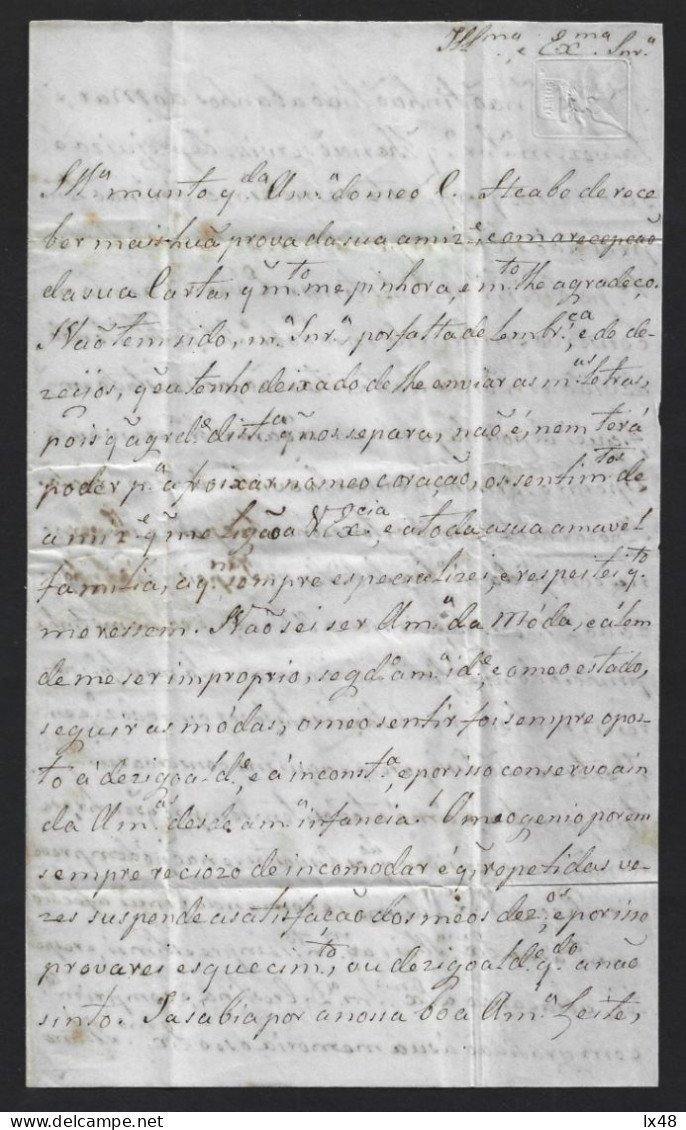 Illma e Exma Snra
Illa munto qda Ama do meo C. Acabo de rece
ber mais huã prova da sua amize, com a recepção
da sua Carta, q mto me pinhora, e mto lhe agradeço.
Não tem sido, ma Snra, por falta de Lembrça, e de de-
zeijos, q eu tenho deixado de lhe enviar as mas Letras,
pois q a grde dista q nos separa, não é, nem terá
poder pa afroixar no meo coração, os sentimtos de
amize q me ligão a V Excia, e a toda a sua amavel
familia, a qm sempre especializei, e respeitei qto
meressem. Não sei ser Ama da Móda, e além
de me ser improprio, segdo a ma ide, e o meo estado,
seguir as módas, o meo sentir foi sempre opos-
to á dezigoalde, e á inconsta, e por isso conservo ain
da Amas desde a ma infancia. O meo genio porem
sempre reciozo de incomodar é q repetidas ve-
zes suspende a satisfação dos meos dezos, e por isso
provarei esquecimto, ou dezigoalde, qdo a não
sinto. Ja sabia por a nossa boa Ama Leite,
lx48